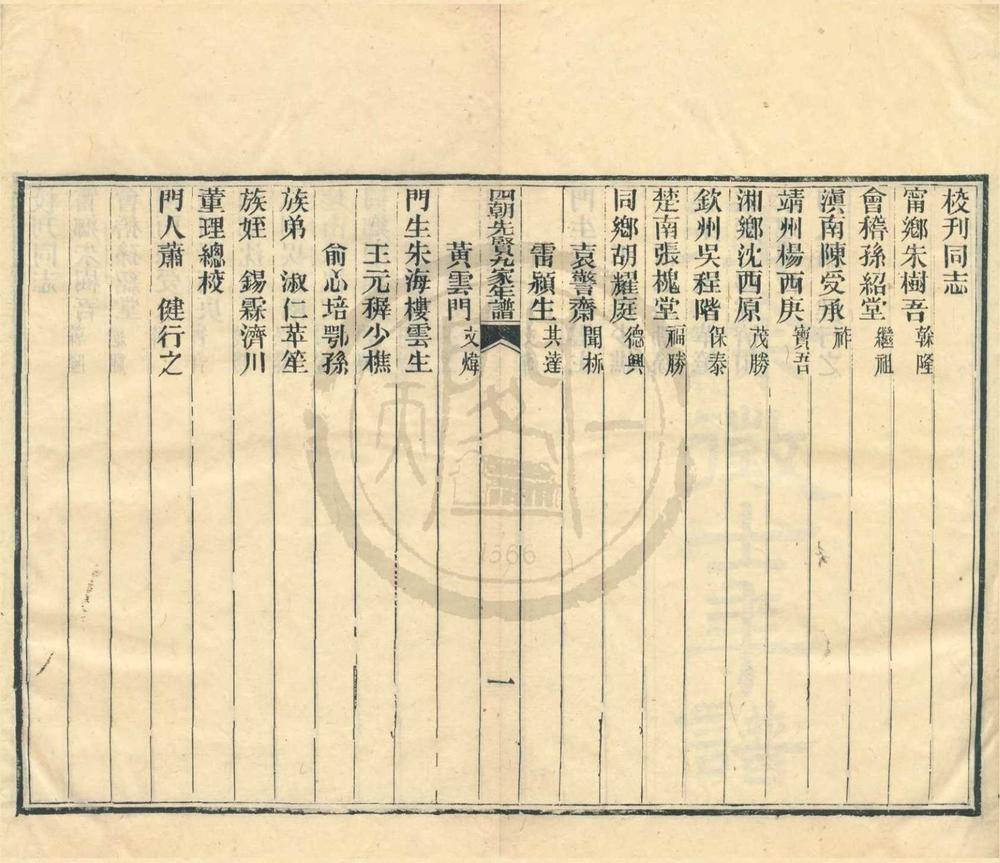 校刊同志
甯鄉朱樹吾榦隆
會稽孫紹堂繼祖
滇南陳受承祚
靖州楊西庚寶吾
湘鄉沈西原茂勝
欽州吳程階保泰
楚南張槐堂福勝
同鄉胡耀庭德興
袁警齋聞柝
雷穎生其達
四朝先賢六家年譜
一
黃雲門文煒
門生朱海樓雲生
王元穉少樵
俞心培鄂孫
族弟淑仁萃笙
族姪錫霖濟川
董理總校
門人蕭健行之
1566